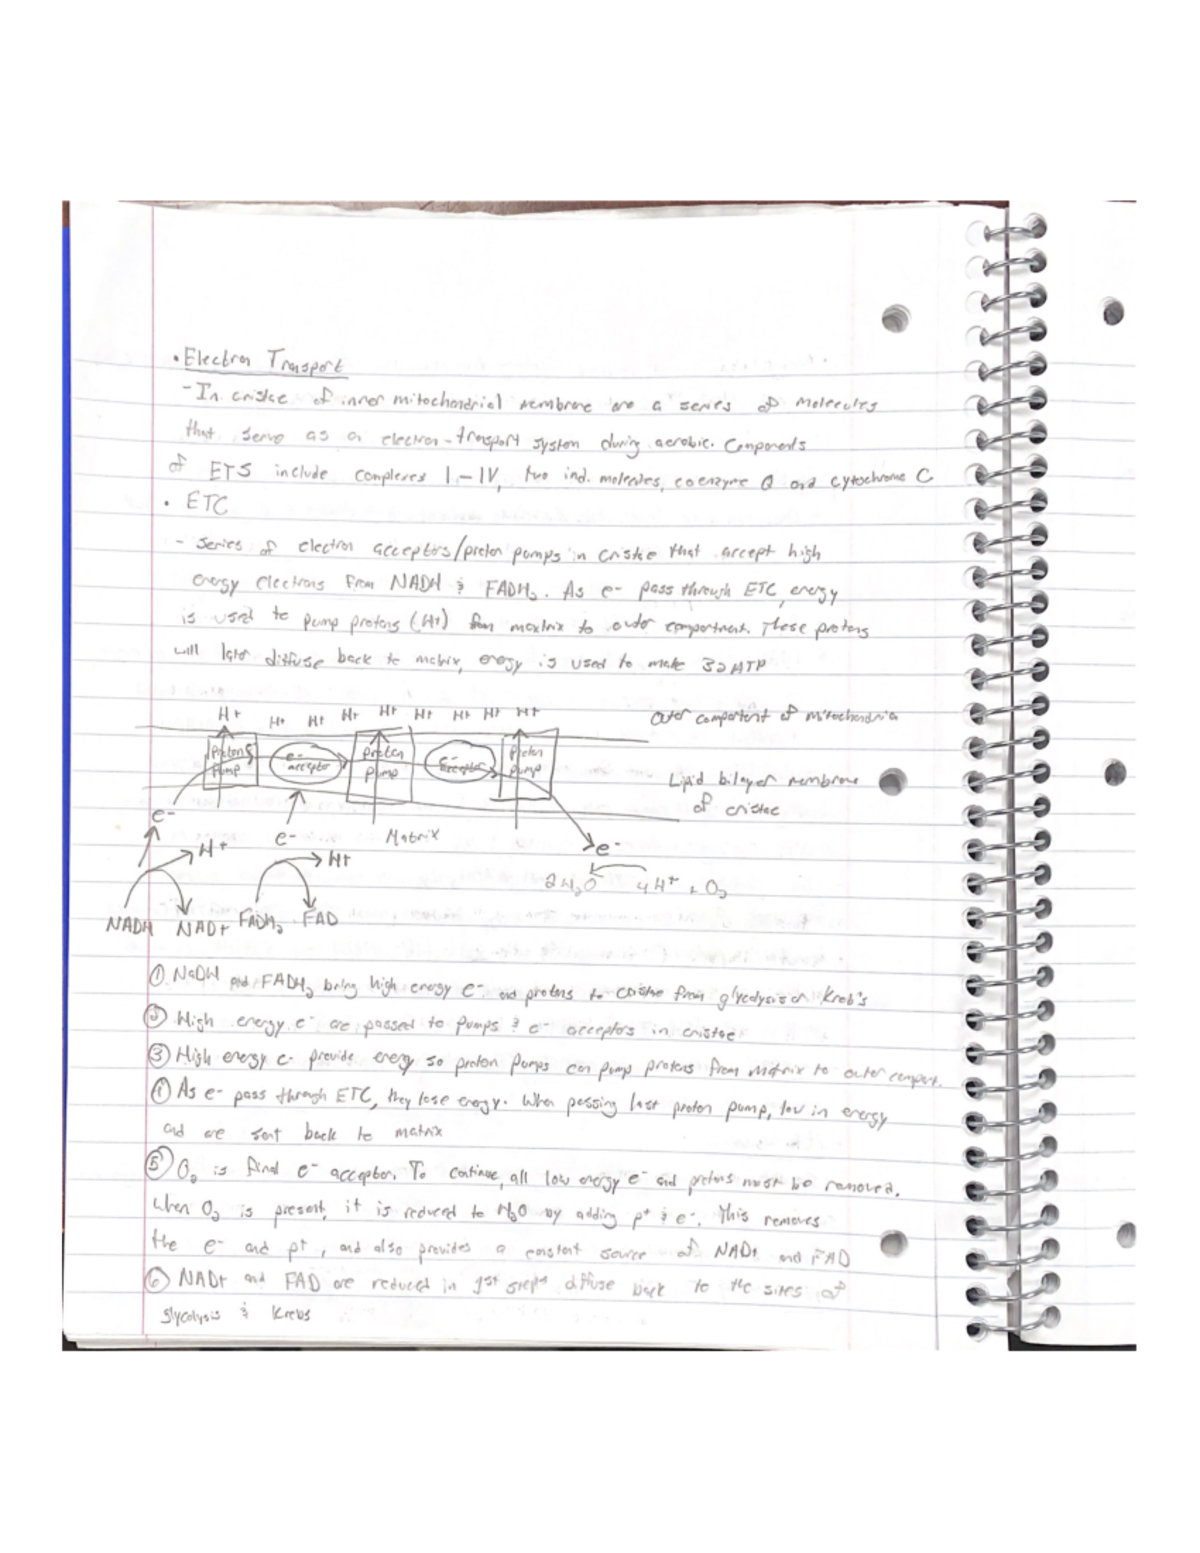 • Electron Transport
- In cristae of inner mitochondrial membrane are a series of molecules
that serve as a electron-transport system during aerobic. Components
of ETS include complexes I-IV, two ind. molecules, coenzyme Q and cytochrome C
• ETC
- series of electron acceptors/proton pumps in cristae that accept high
energy electrons from NADH & FADH₂. As e- pass through ETC, energy
is used to pump protons (H+) from matrix to outer compartment. These protons
will later diffuse back to matrix, energy is used to make 32 ATP
H+ H+ H+ H+ H+ H+ H+ H+ H+
outer compartment of mitochondria
Proton Pump
e- acceptor
Proton Pump
e- acceptor
Proton Pump
Lipid bilayer membrane
of cristae
e-
H+
e-
H+
Matrix
e-
2H₂O 4H+ + O₂
NADH NAD+ FADH₂ FAD
① NADH and FADH₂ bring high energy e- and protons to cristae from glycolysis or Kreb's
② High energy e- are passed to pumps & e- acceptors in cristae
③ High energy e- provide energy so proton pumps can pump protons from matrix to outer compart.
④ As e- pass through ETC, they lose energy. When passing last proton pump, low in energy
and are sent back to matrix
⑤ O₂ is final e- acceptor. To continue, all low energy e- and protons must be removed.
When O₂ is present, it is reduced to H₂O by adding p+ & e-. This removes
the e- and p+, and also provides a constant source of NAD+ and FAD
⑥ NAD+ and FAD are reduced in 1st step & diffuse back to the sites of
glycolysis & Krebs